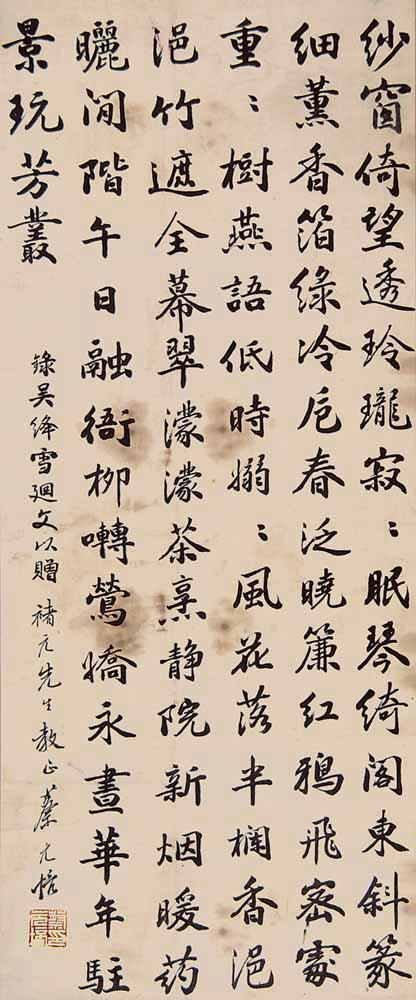 紗窗倚望透玲瓏寂〻眠琴綺閣東斜篆
細薰香箔綠冷卮春泛曉簾紅鴉飛密處
重〻樹燕語低時嫋〻風花落半欄香浥
浥竹遮全幕翠濛濛茶烹靜院新烟暖药
曬閒階午日融衙柳囀鶯嬌永晝華年駐
景玩芳叢
錄吳絳雪廻文以贈 褚元先生教正 蔡元培